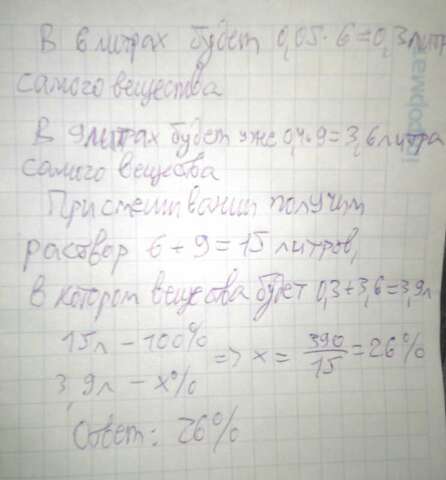 В 6 литрах будет 0,05·6=0,3 литр
самого вещества
В 9 литрах будет уже 0,4·9=3,6 литра
самого вещества
При смешивании получим
раствор 6+9=15 литров,
в котором вещества будет 0,3+3,6=3,9л
15л – 100%
=> x = 390/15 = 26%
3,9л – x%
Ответ: 26%